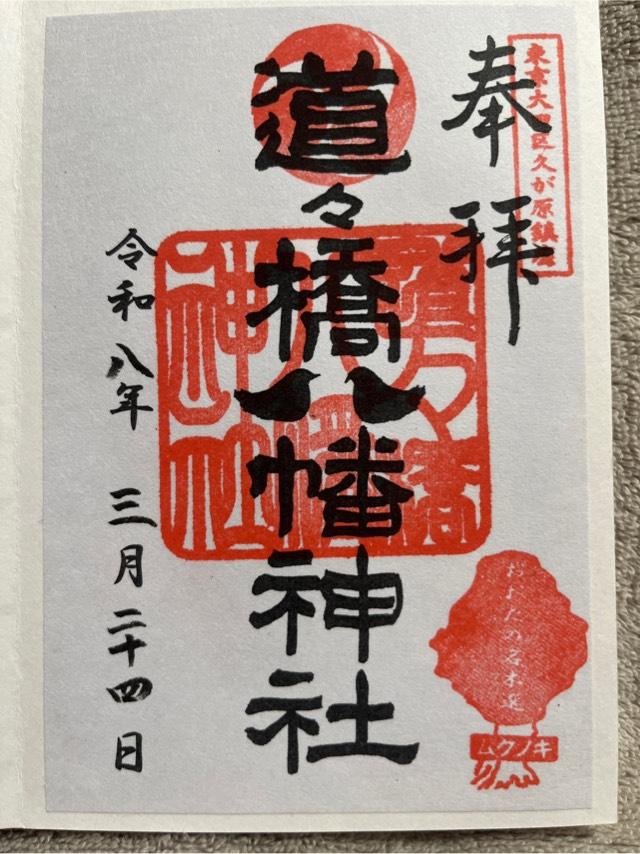 東京大田区久が原鎮座
奉拝
道々橋八幡神社
道々橋
八幡
神社
令和八年 三月二十四日
おおたの名木選
ムクノキ